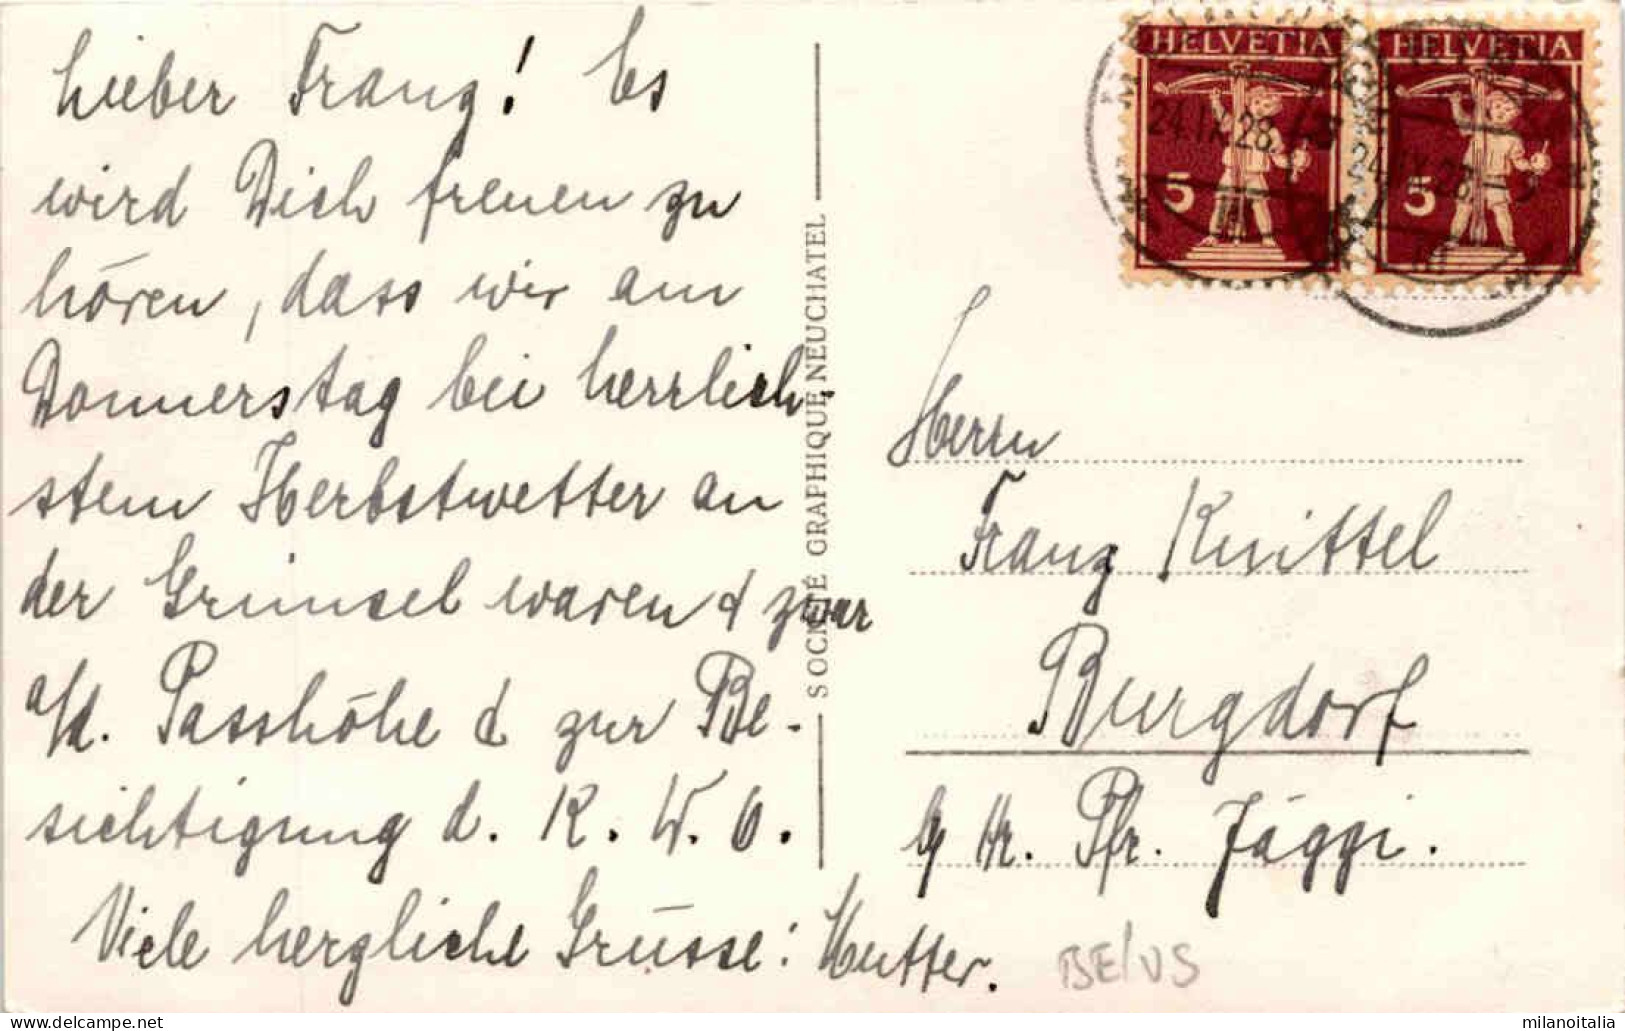 Lieber Franz! Es
wird Dich freuen zu
hören, dass wir am
Donnerstag bei herrlich-
stem Herbstwetter an
der Grimsel waren & zwar
a/d. Passhöhe & zur Be-
sichtigung d. K. W. O.
Viele herzliche Grüsse: Mutter.
SOCIÉTÉ GRAPHIQUE NEUCHATEL
HELVETIA
5
24.IX.28.
III
HELVETIA
5
24.IX.28.
III
Herrn
Franz Knittel
Burgdorf
b/ Hr. Pfr. Jäggi.
BE/VS
milanoitalia